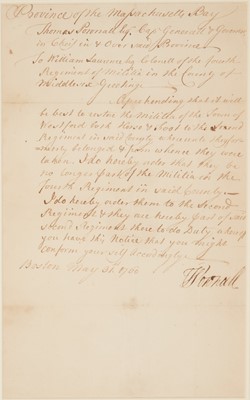 Province of the Massachusetts Bay
Thomas Pownall Esq. Cap: General & Governor
in Chief in & Over said Province
To William Lawrence Esq Colonel of the fourth
Regiment of Militia in the County of
Middlesex Greeting
Apprehending that it will
be best to restore the Militia of the Town of
Westford both Horse & Foot to the Second
Regiment in said County whereunto they for-
merly belonged & from whence they were
taken. I do hereby order that they be
no longer part of the Militia in the
fourth Regiment in said County
I do hereby order them to the Second
Regiment & they are hereby part of said
second Regiment there to do Duty, whereof
you have this Notice that you might
conform yourself accordingly
Boston May 31. 1760
TPownall